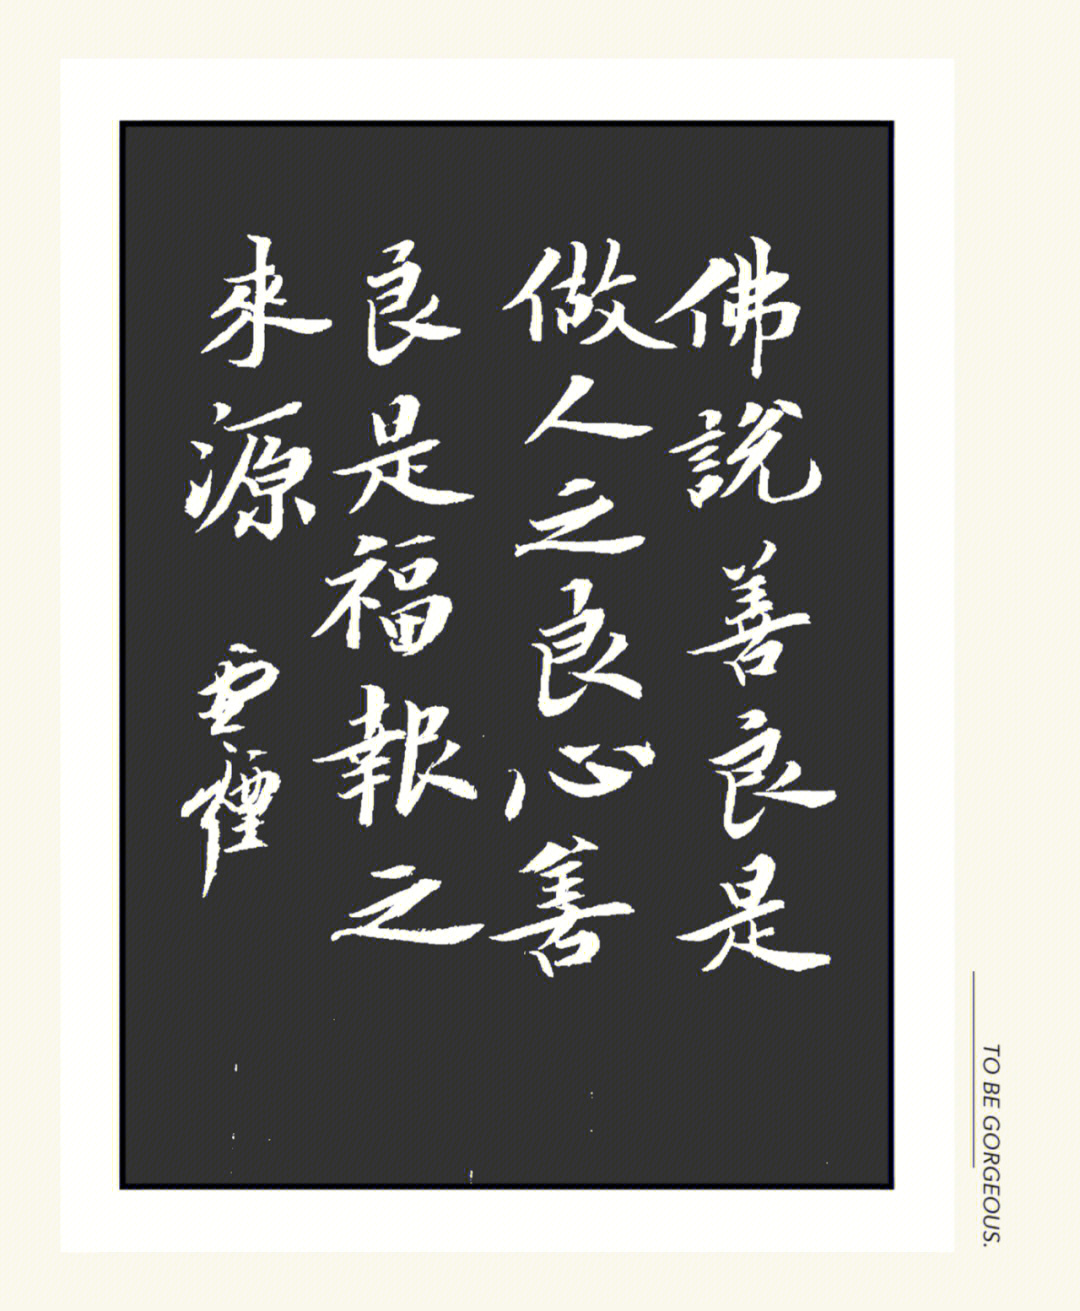 佛說善良是
做人之良心善
良是福報之
來源
TO BE GORGEOUS.